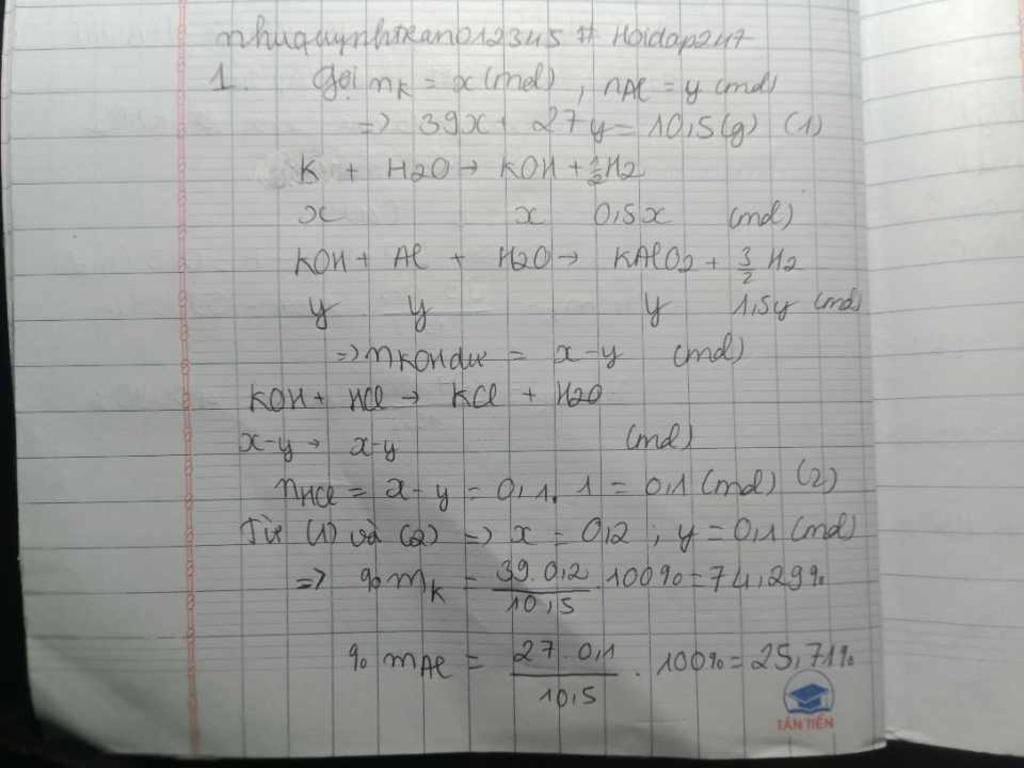 nhuquynhtran012345 # Hoidap247
1. Gọi nK = x (mol), nAl = y (mol)
=> 39x + 27y = 10,5 (g) (1)
K + H2O → KOH + ½H2
x x 0,5x (mol)
KOH + Al + H2O → KAlO2 + 3/2 H2
y y y 1,5y (mol)
=> nKOH dư = x-y (mol)
KOH + HCl → KCl + H2O
x-y → x-y (mol)
nHCl = x-y = 0,1. 1 = 0,1 (mol) (2)
Từ (1) và (2) => x = 0,2 ; y = 0,1 (mol)
=> % mK = 39.0,2/10,5 .100% = 74,29%
% mAl = 27.0,1/10,5 . 100% = 25,71%
TÂN TIẾN